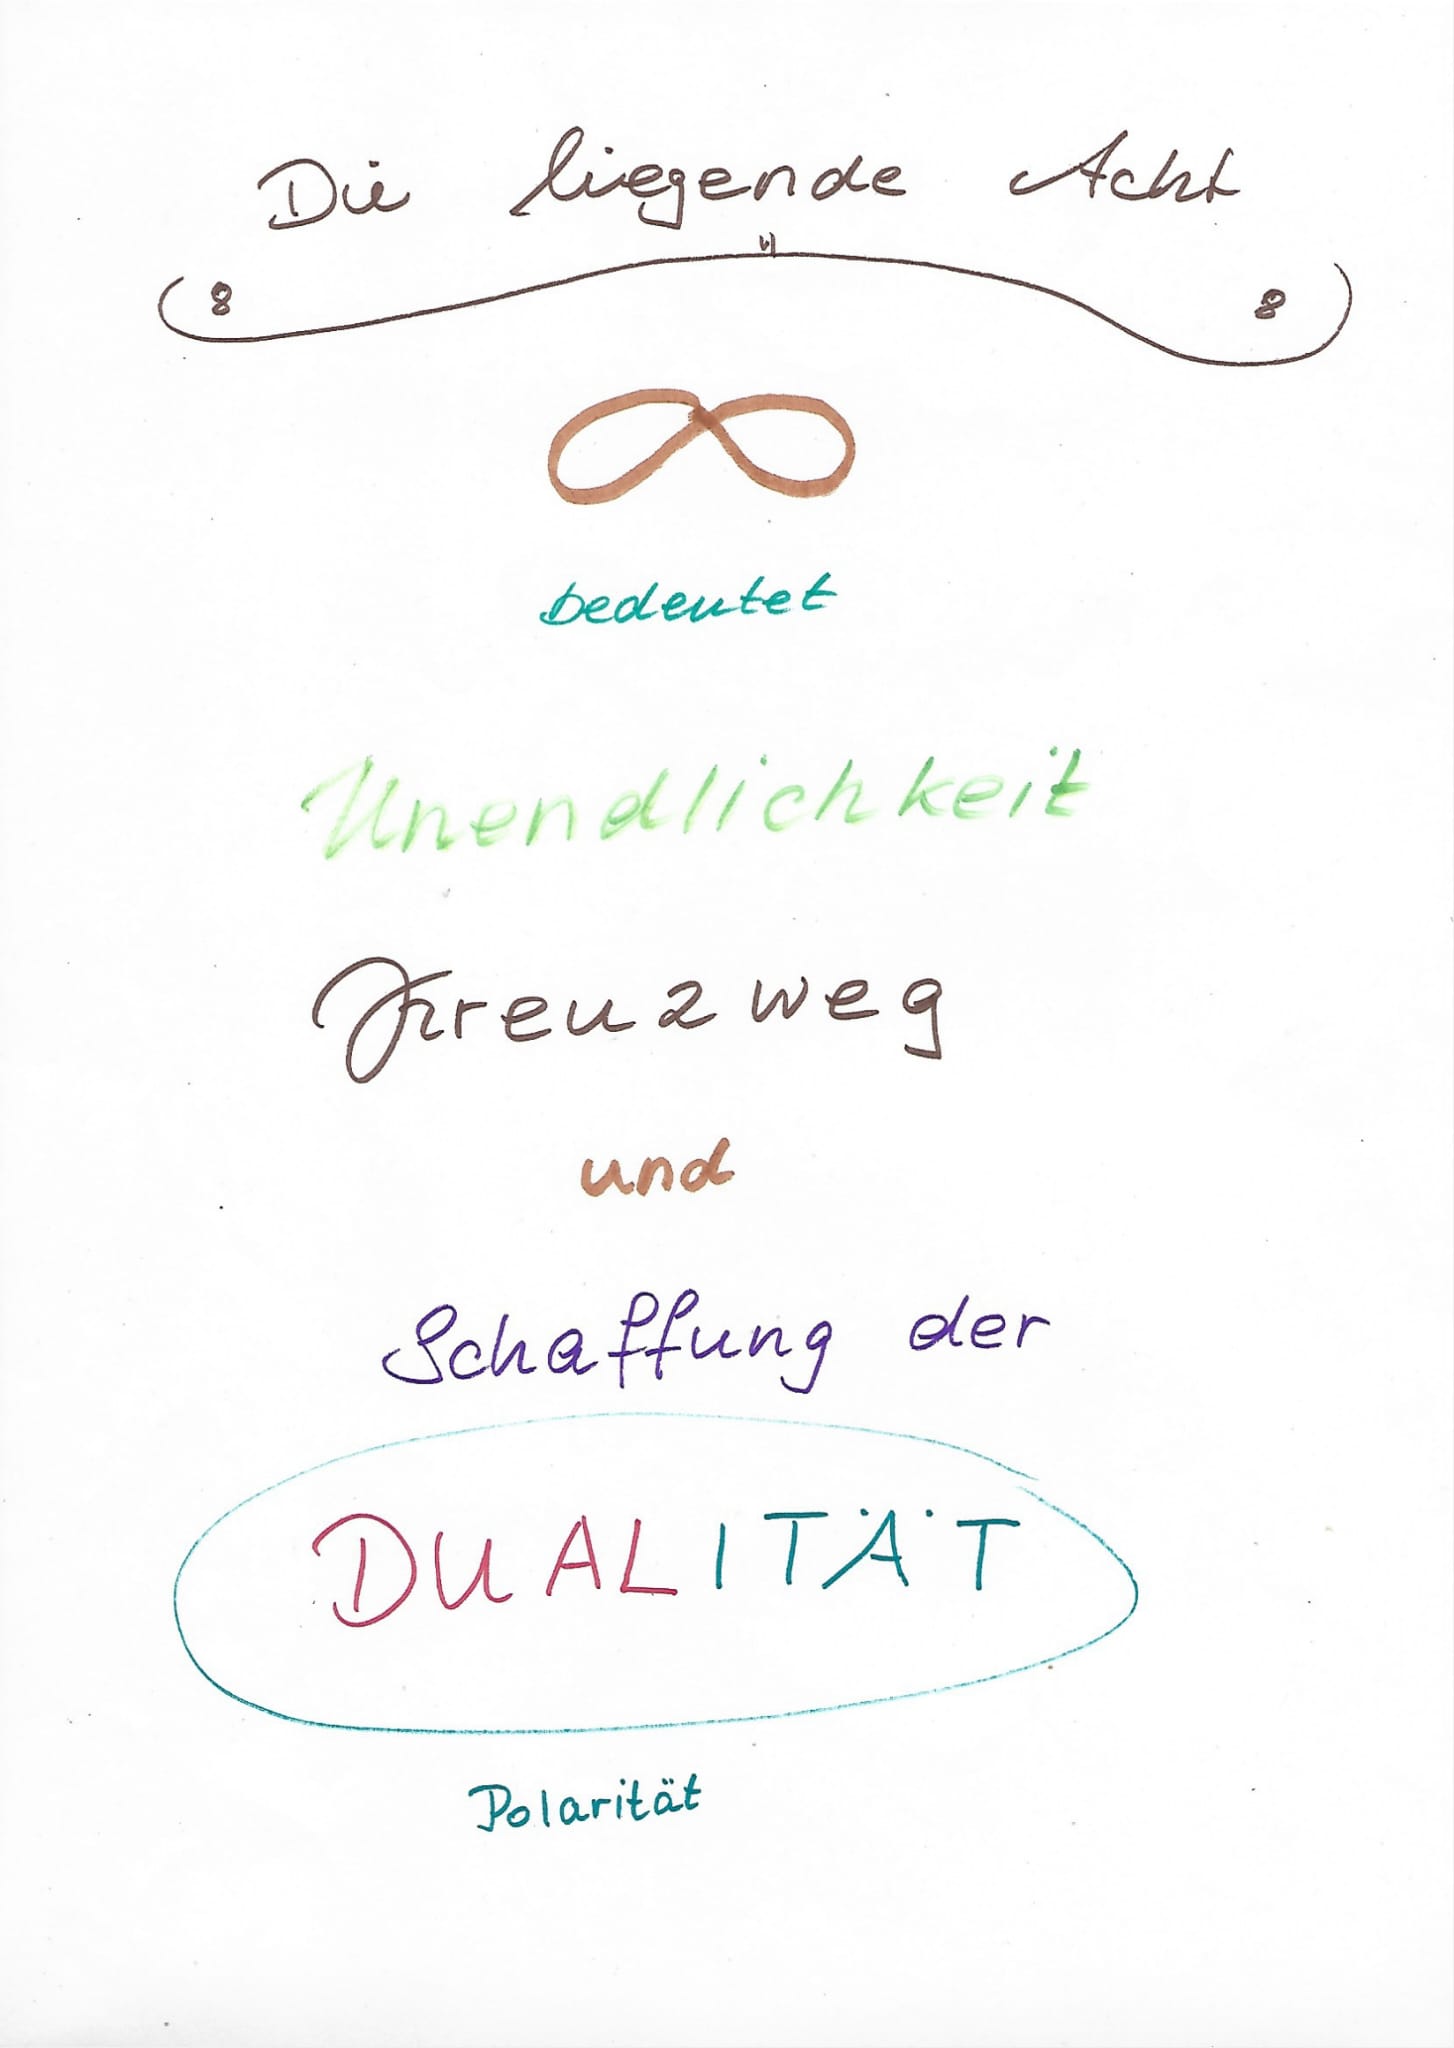 Die liegende Acht
8 8
bedeutet
Unendlichkeit
Kreuzweg
und
Schaffung der
DUALITÄT
Polarität